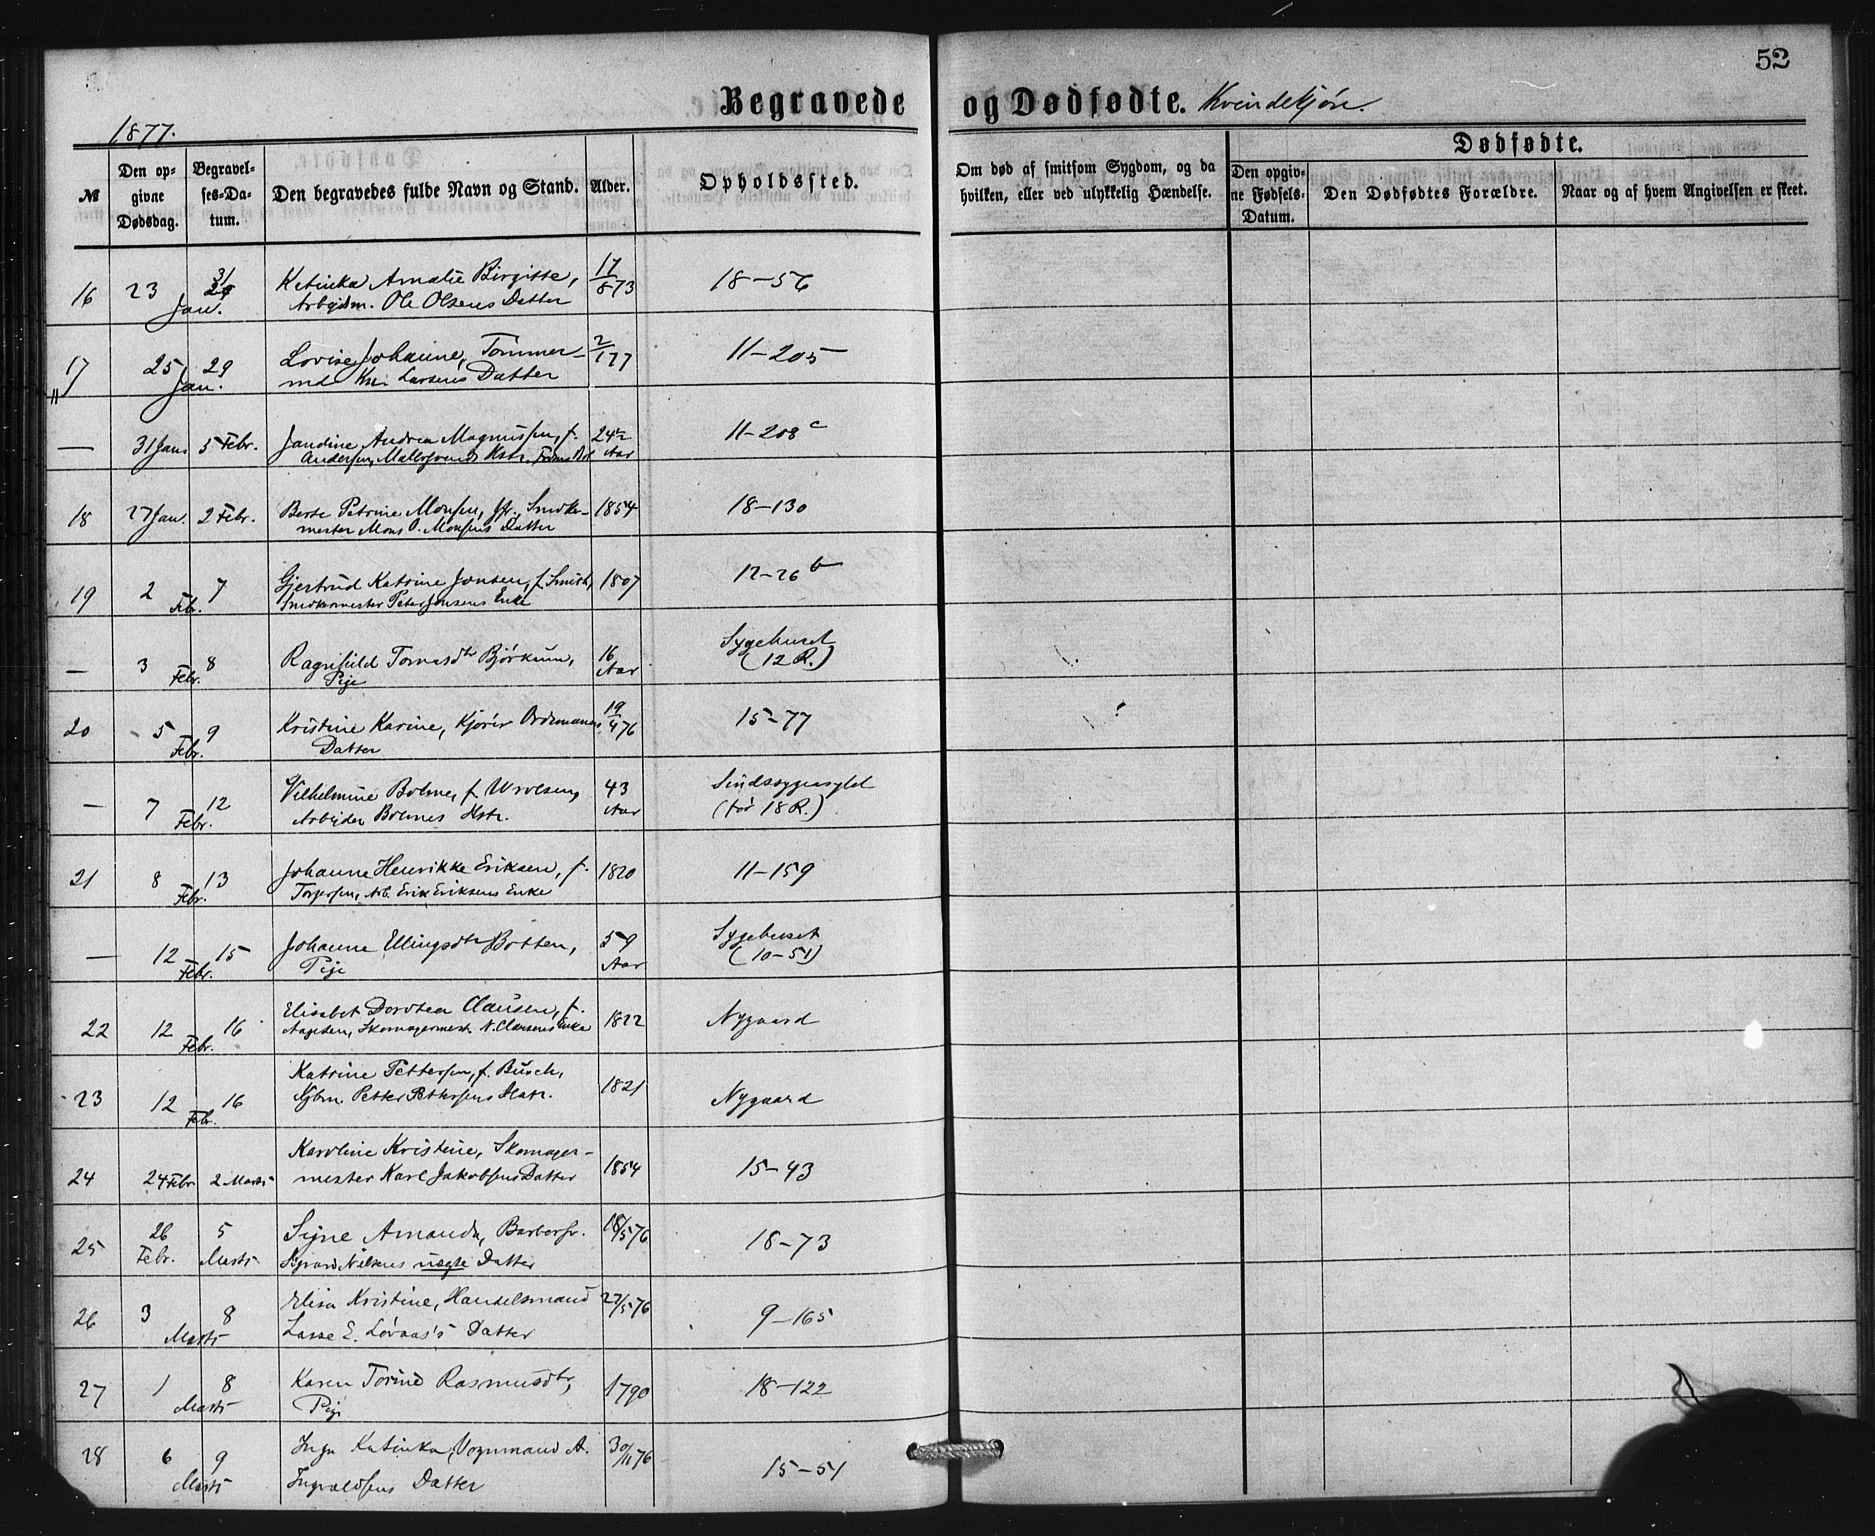 52
Begravede og Dødfødte. Kvindekjøn.
1877.
№ Den op-givne Dødsdag. Begravel-ses-Da-tum. Den begravedes fulde Navn og Stand. Alder. Opholdssted. Om død af smitsom Sygdom, og da hvilken, eller ved ulykkelig Hændelse. Dødfødte. Den opgiv-ne Fødsels-Datum. Den Dødfødtes Forældre. Naar og af hvem Angivelsen er skeet.
16 23 31 Jan. Katinka Amalie Birgitte, 17/873 18-56
Arbejdsm. Ole Olsens Datter
17 25 29 Jan. Lovise Johanne, Tømmer- 2/177 11-205
md Kn. Larsens Datter
— 31 Jan 5 Febr. Jandine Andrea Magnussen, f. 24½ Aar 11-208 c
Andersen, Malersvends Hstr.
18 27 Jan. 2 Febr. Berte Petrine Monsen, Snedker- 1854 18-130
mester Mons O. Monsens Datter
19 2 7 Feb. Gjertrud Katrine Jansen, f. Smith, 1807 12-26 b
Snedkermester Peter Jansens Enke
— 3 8 Febr. Ragnhild Tomasdtr Bjørkum, 16 Aar Sygehuset
Pige (12 R.)
20 5 9 Febr. Kristine Karine, Kjører Ordemanns 19/476 15-77
Datter
— 7 12 Febr. Vilhelmine Bohne, f. Wrolsen, 43 Aar Sindssygeasylet
Arbeider Bohnes Hstr. (før 18 R.)
21 8 13 Febr. Johanne Henrikke Eriksen, f. 1820 11-159
Torgersen, Arb. Erik Eriksens Enke
— 12 15 Febr. Johanne Ellingsdtr Botten, 59 Aar Sygehuset
Pige (10-51)
22 12 16 Febr. Elisabet Dorotea Clausen, f. 1822 Nygaard
Aagesen, Skomagermest. N. Clausens Enke
23 12 16 Febr. Katrine Pettersen, f. Busch, 1821 Nygaard
Petter Pettersens Hstr.
24 24 Febr 2 Marts Karoline Kristine, Skomager- 1854 15-43
mester Karl Jakobsens Datter
25 26 Febr. 5 Marts Signe Amanda, Barbersv. 18/576 18-73
Nilsens uægte Datter
26 3 8 Marts Elisa Kristine, Handelsmand 27/576 9-165
Lasse E. Løvaas's Datter
27 1 8 Marts Karen Torine Rasmusdtr, 1790 18-122
Pige
28 6 9 Marts Inga Katinka, Vognmand A. 30/1176 15-51
Ingvaldsens Datter